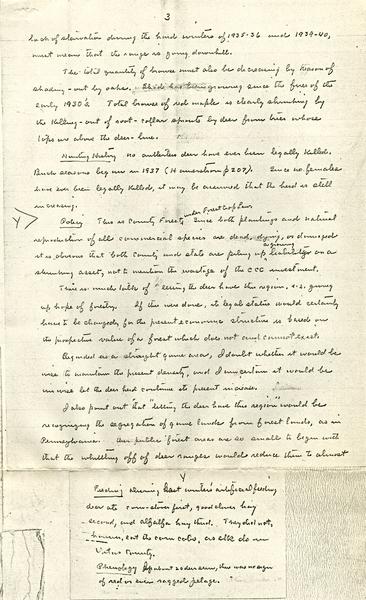 3
lack of starvation during the hard winters of 1935-36 and 1939-40,
must mean that the range is going downhill.
The total quantity of browse must also be decreasing by reason of
shading-out by oaks. growing since the fires of the
early 1930's. Total browse of red maple is clearly shrinking by
the killing-out of root-collar sprouts by deer from trees whose
tops are above the deer-line.
Hunting History no antlerless deer have ever been legally killed.
Buck seasons began in 1937 ( p 207). Since no females
have ever been legally killed, it may be assumed that the herd is still
increasing.
Y
Policy This is County Forest under Forest Crop Law. Since both plantings and natural
reproduction of all commercial species are dead, dying, or damaged
it is obvious that both County and state are piling up liabilities on a
shrinking asset, not to mention the wastage of the CCC investment.
There is much talk of "letting the deer have this region", i.e. giving
up hope of forestry. If this were done, its legal status would certainly
have to be changed, for the present economic structure is based on
the prospective value of a forest which does not and cannot exist.
Regarded as a straight game area, I doubt whether it would be
wise to maintain the present density, and I am certain it would be
unwise to let the deer herd continue its present increase.
I also point out that "letting the deer have this region" would be
recognizing the segregation of game lands from forest lands, as in
Pennsylvania. Our public forest areas are so small to begin with
that the whittling off of deer ranges would reduce them to almost
Y
Feeding During last winter's artificial feeding
deer ate corn-clover first, good clover hay
second, and alfalfa hay third. They did not,
however, eat the corn cobs, as elk do in
County.
Phenology about 20 deer seen, there was no sign
of red or even ragged pelage.